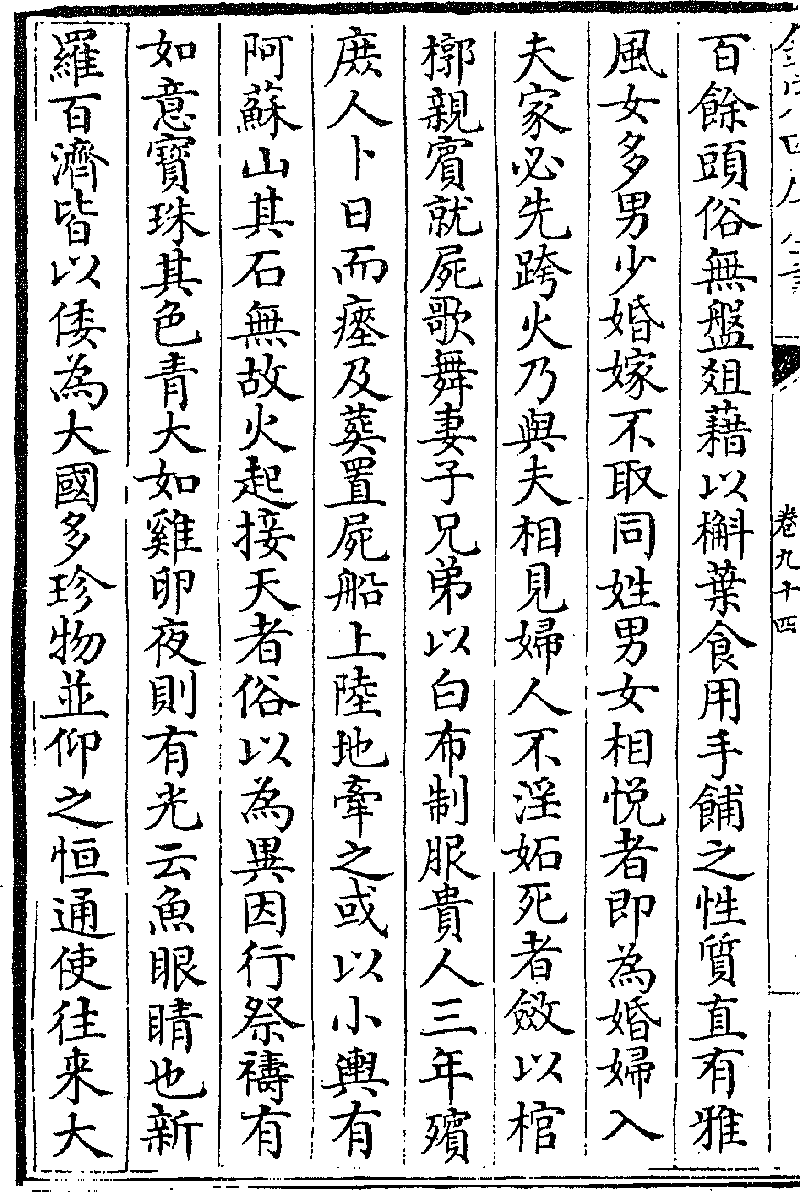 卷九十四
百餘頭俗無盤爼藉以檞葉食用手餔之性質直有雅
風女多男少婚嫁不取同姓男女相悅者即為婚婦入
夫家必先跨火乃與夫相見婦人不淫妬死者斂以棺
槨親賓就屍歌舞妻子兄弟以白布制服貴人三年殯
庶人卜日而瘞及葬置屍船上陸地牽之或以小輿有
阿蘇山其石無故火起接天者俗以為異因行祭禱有
如意寶珠其色青大如雞卵夜則有光云魚眼睛也新
羅百濟皆以倭為大國多珍物並仰之恒通使往来大